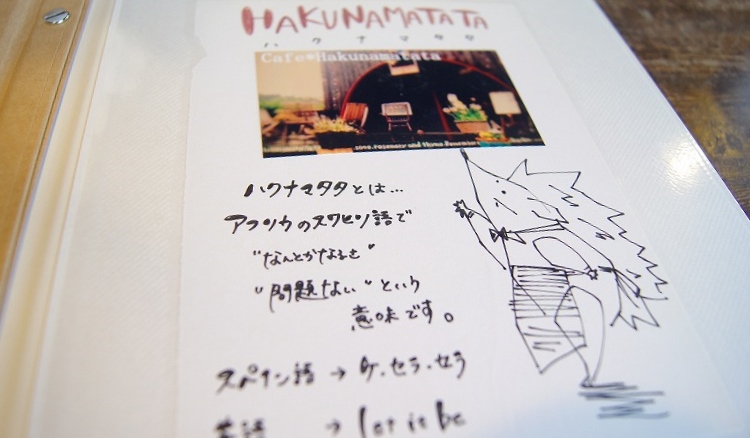 HAKUNAMATATA
ハクナマタタ
Cafe Hakunamatata
ハクナマタタとは...
アフリカのスワヒリ語で
"なんとかなるさ"
"問題ない"という
意味です。
スペイン語 → ケ・セラ・セラ
英語 → let it be